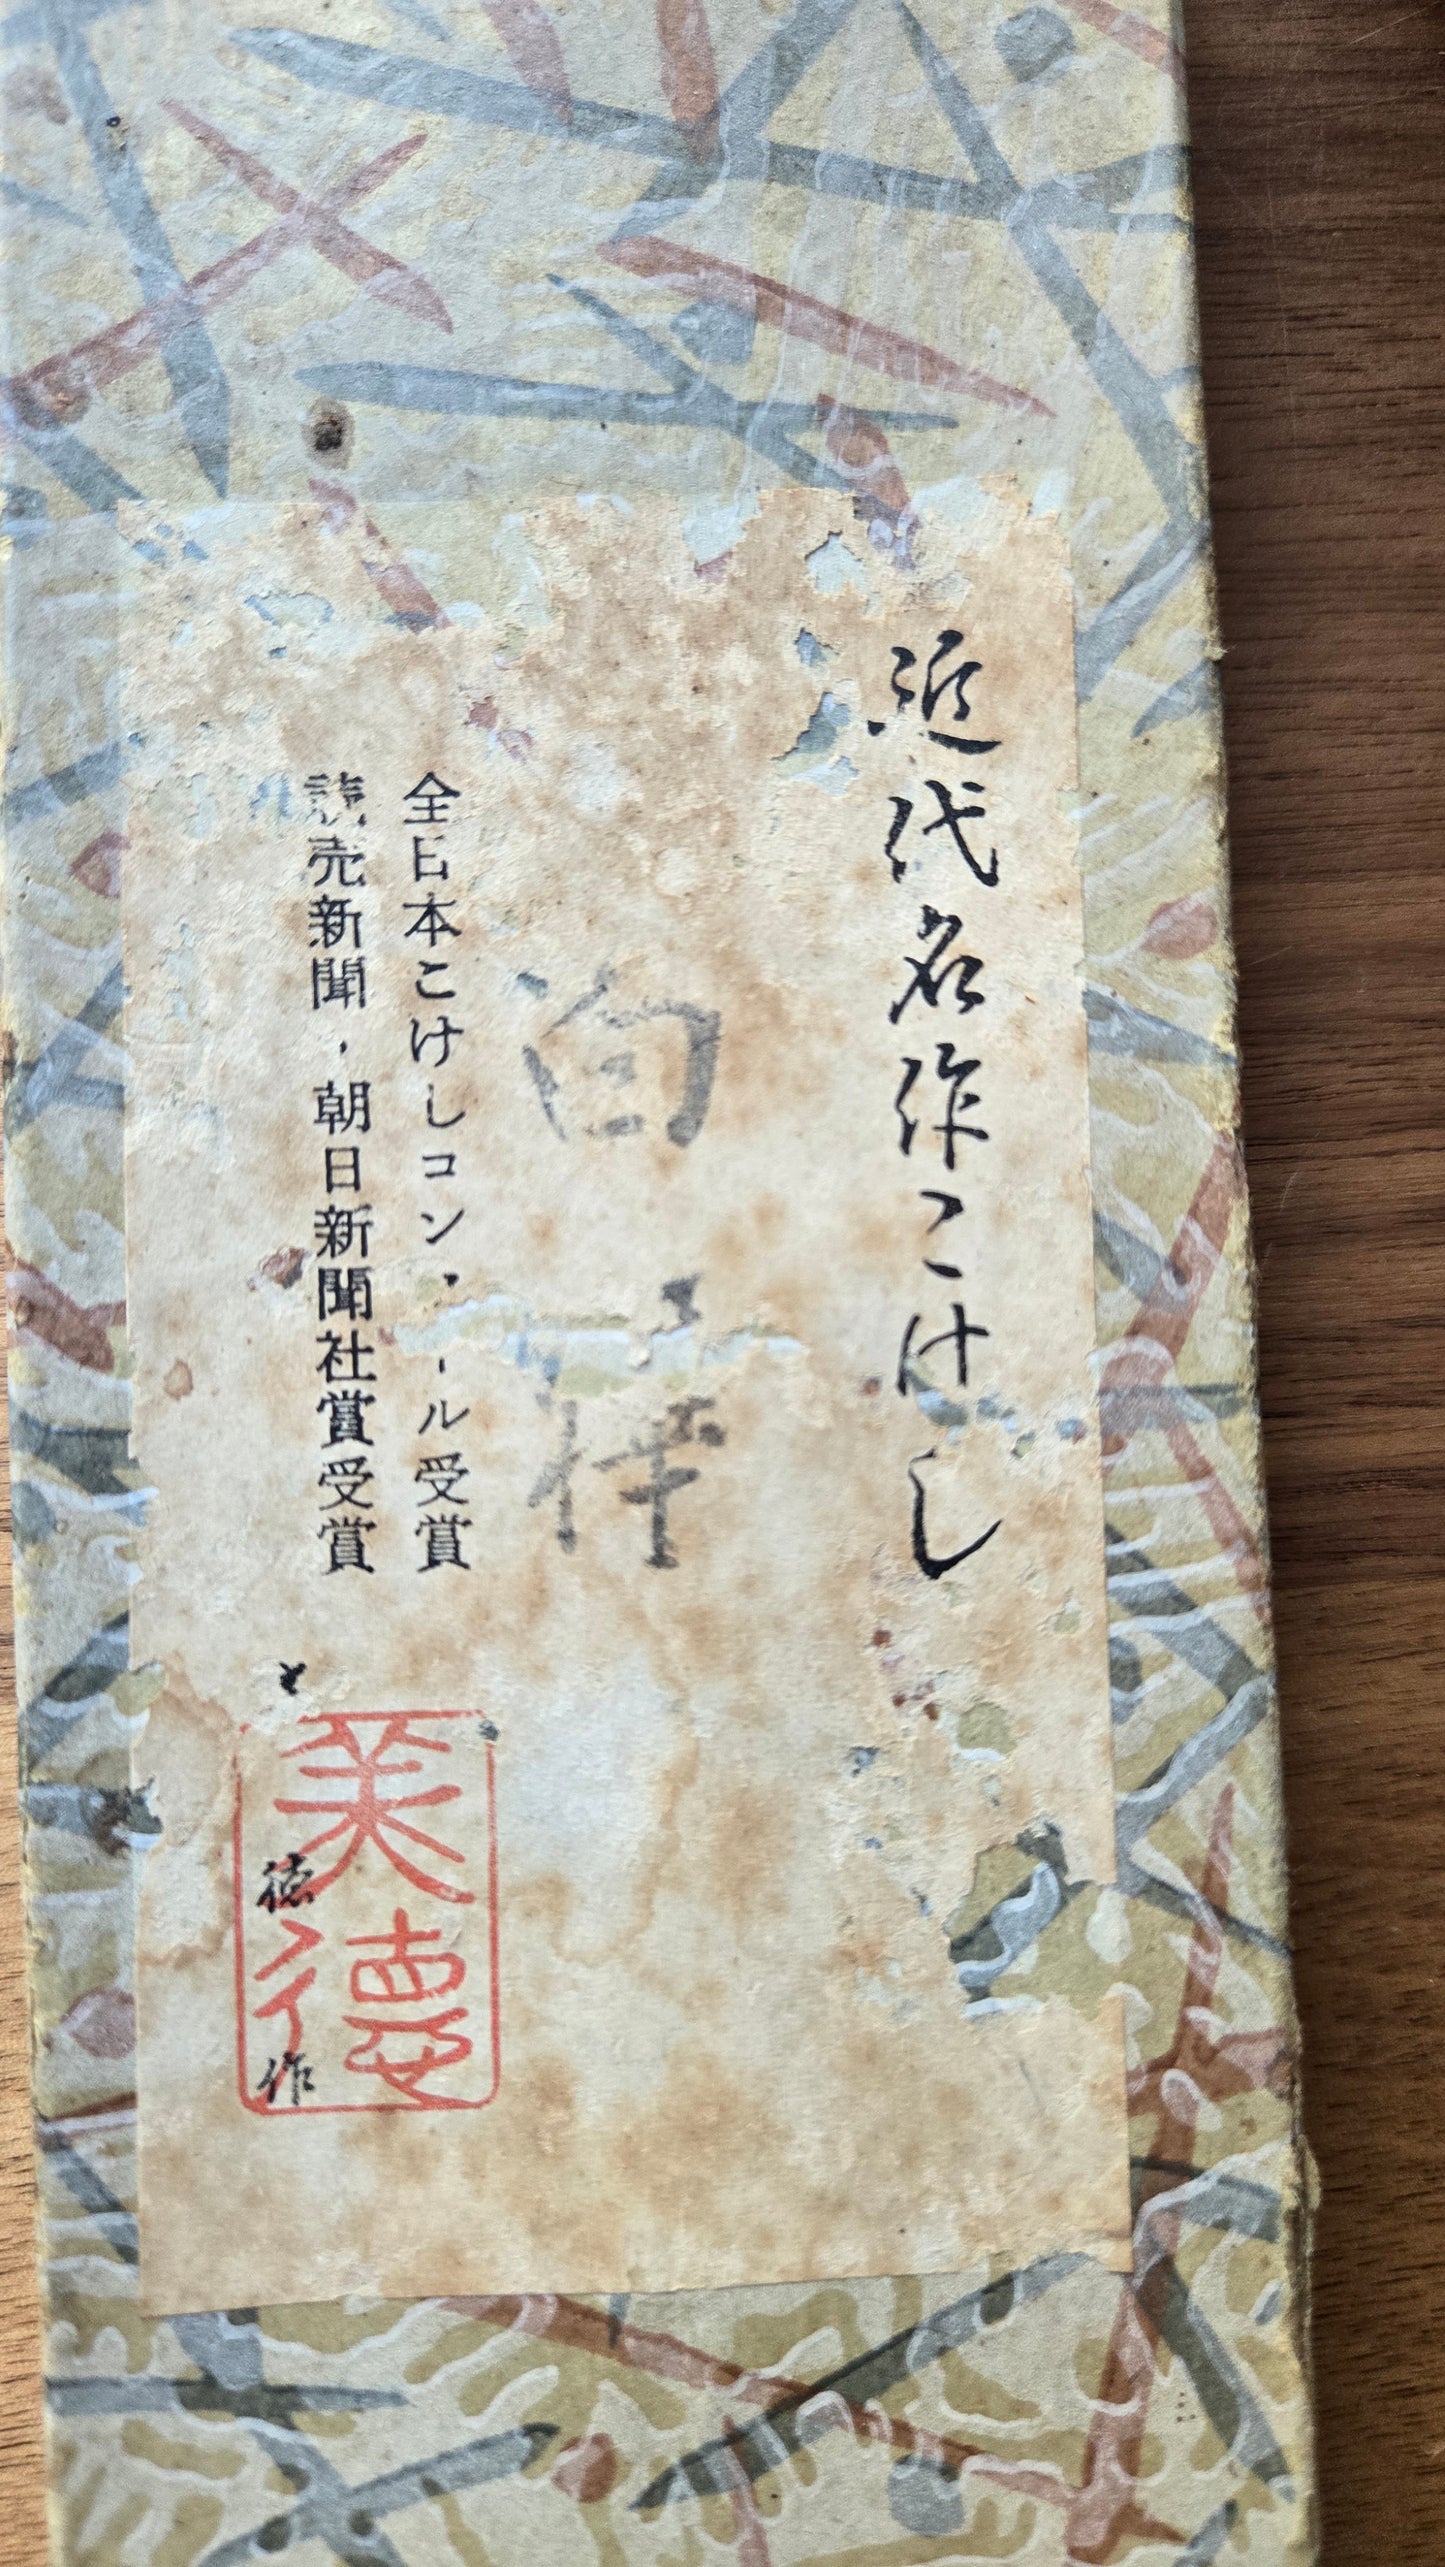 近代名作こけし
全日本こけしコンクール受賞
読売新聞・朝日新聞社賞受賞
徳 作
美徳